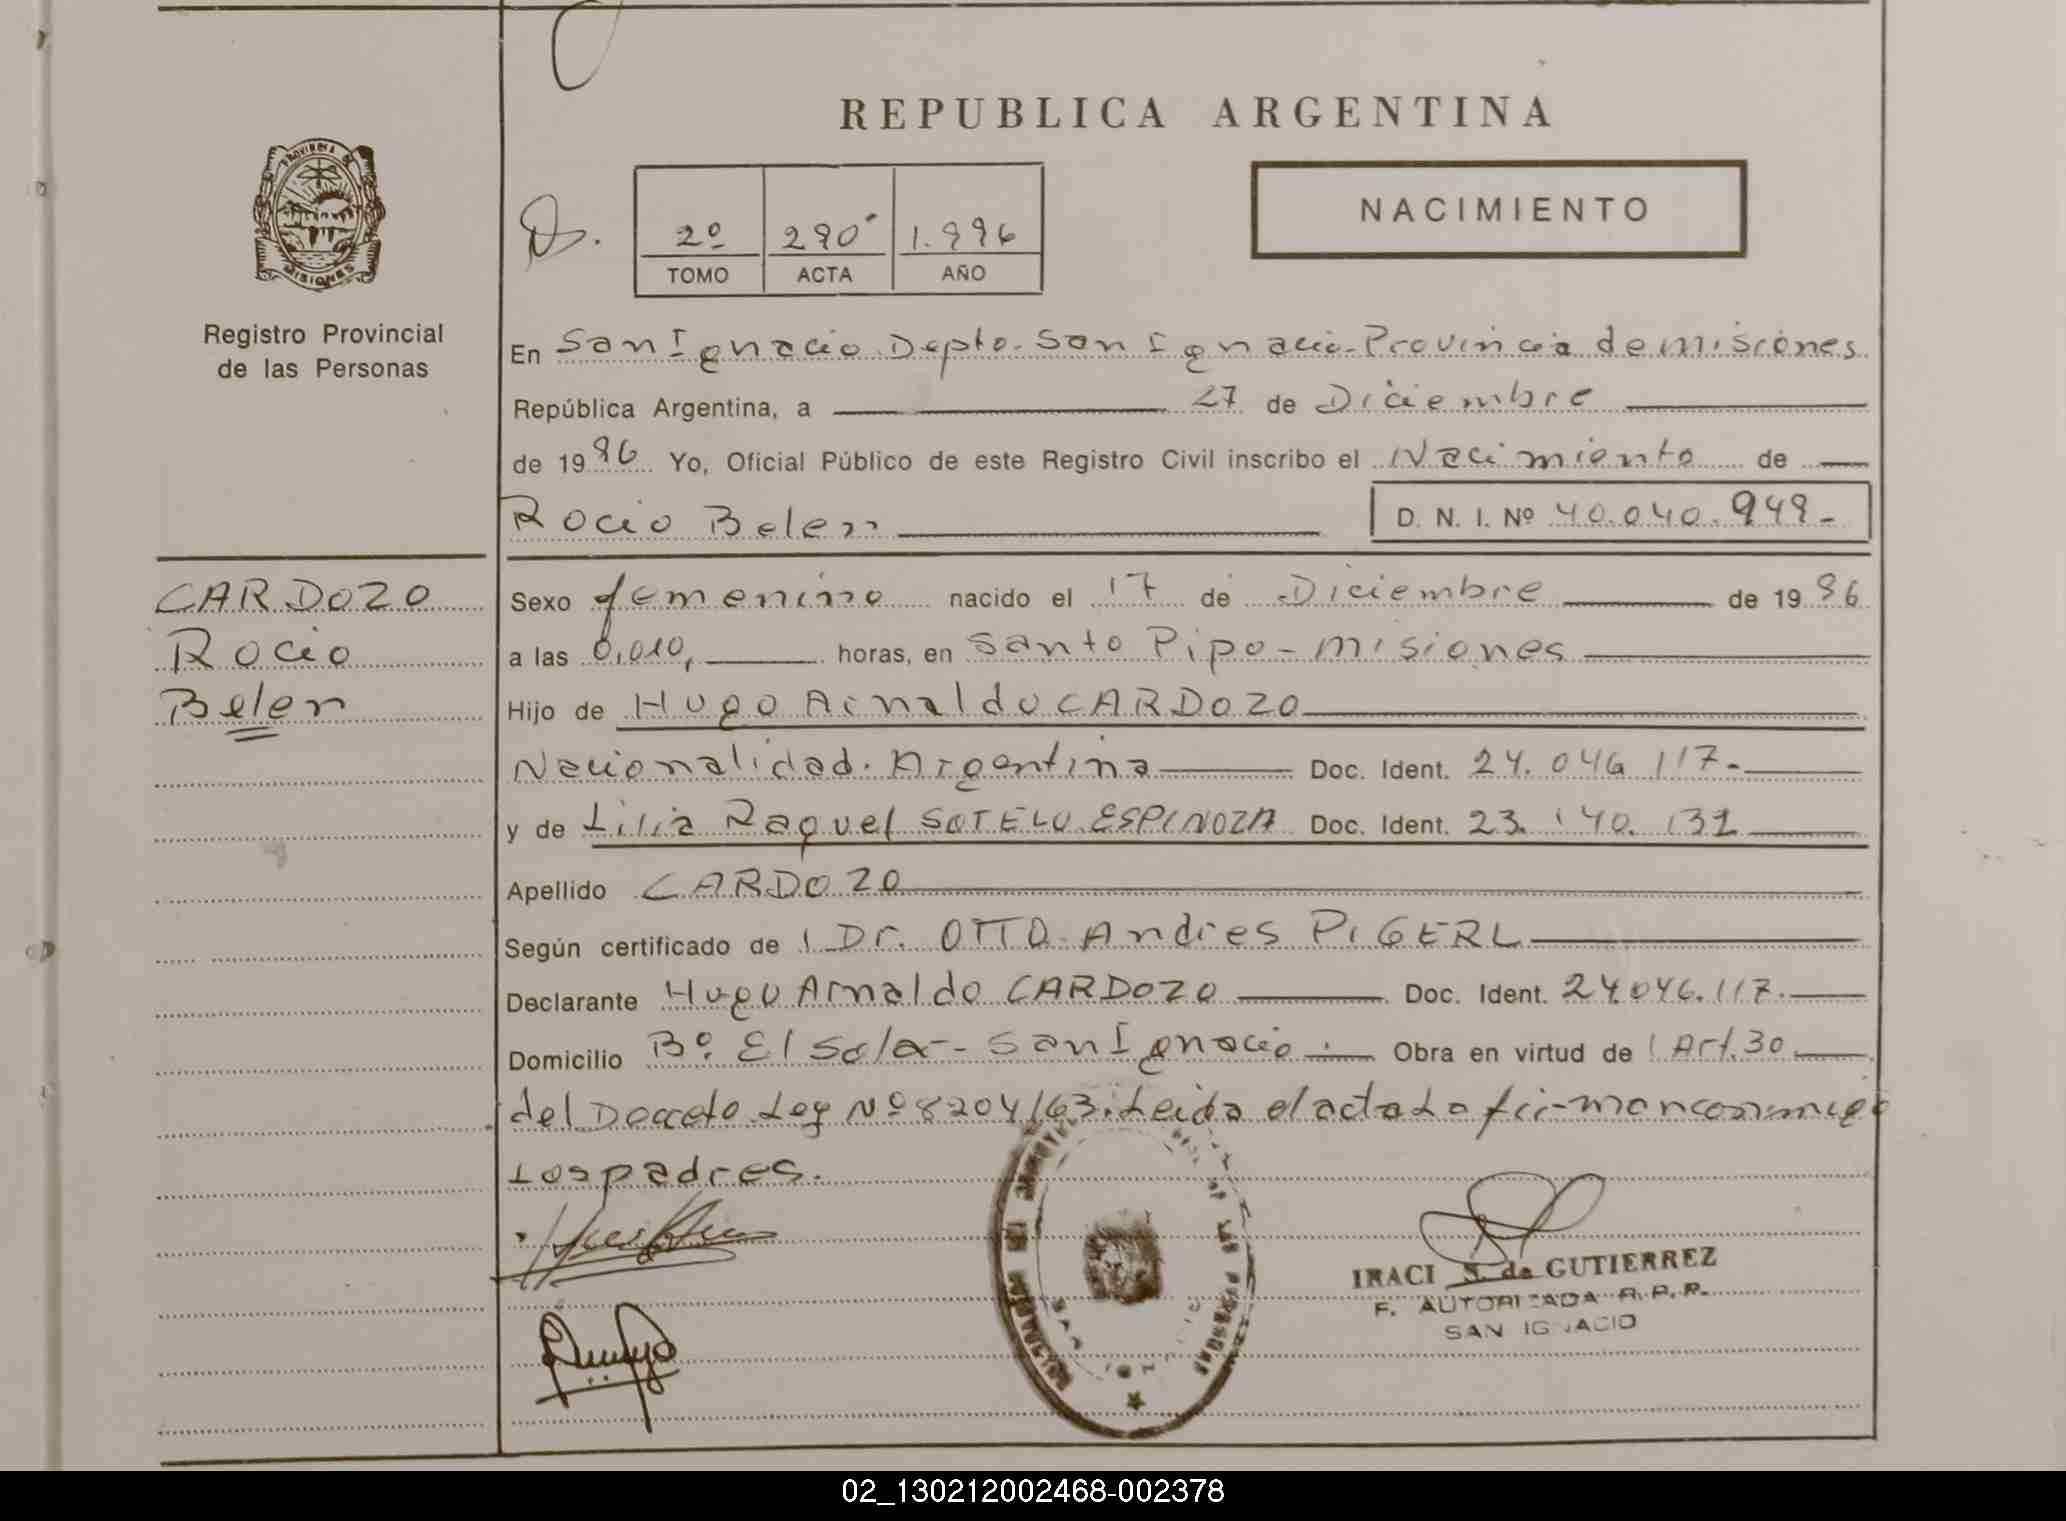 REPUBLICA ARGENTINA
PROVINCIA DE
MISIONES
Registro Provincial
de las Personas
2º 290 1.996
TOMO ACTA AÑO
NACIMIENTO
En San Ignacio Depto. San Ignacio - Provincia de misiones
República Argentina, a 27 de Diciembre
de 1996 Yo, Oficial Público de este Registro Civil inscribo el Nacimiento de
Rocio Belen D. N. I. Nº 40.040.949-
CARDOZO
Rocio
Belen
Sexo femenino nacido el 17 de Diciembre de 1996
a las 0,010, horas, en Santo Pipo - misiones
Hijo de Hugo Arnaldo CARDOZO
Nacionalidad. Argentina Doc. Ident. 24.046.117.-
y de Lilia Raquel SOTELO ESPINOZA Doc. Ident. 23.140.132
Apellido CARDOZO
Según certificado de l Dr. OTTO Andres PIGERL
Declarante Hugo Arnaldo CARDOZO Doc. Ident. 24.046.117.
Domicilio Bº. El Sola - San Ignacio. Obra en virtud de l Art. 30
del Decreto Ley Nº 8204/63. Leida el acta La firman conmigo
Los padres.
DE LAS PERSONAS
IRACI S. de GUTIERREZ
F. AUTORIZADA R.P.P.
SAN IGNACIO
02_130212002468-002378